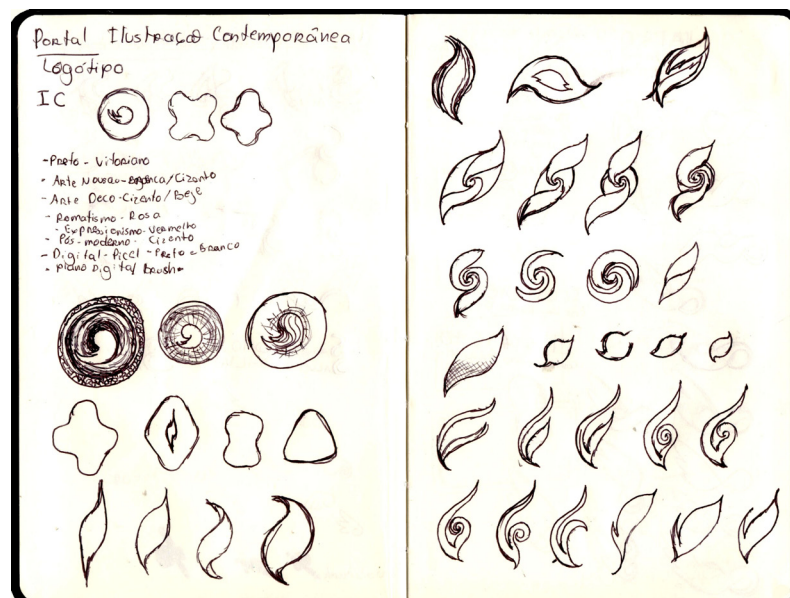 Portal Ilustração Contemporânea
Logótipo
IC
- Preto - Vitoriano
- Arte Nouvao - Orgânica/Cizonto
- Arte Deco - Cizento/Beje
- Romatismo - Rosa
- Expressionismo - Vermelho
- Pós-moderno - Cizento
- Digital - Picel - Preto e Branco
- plano Digital Brush